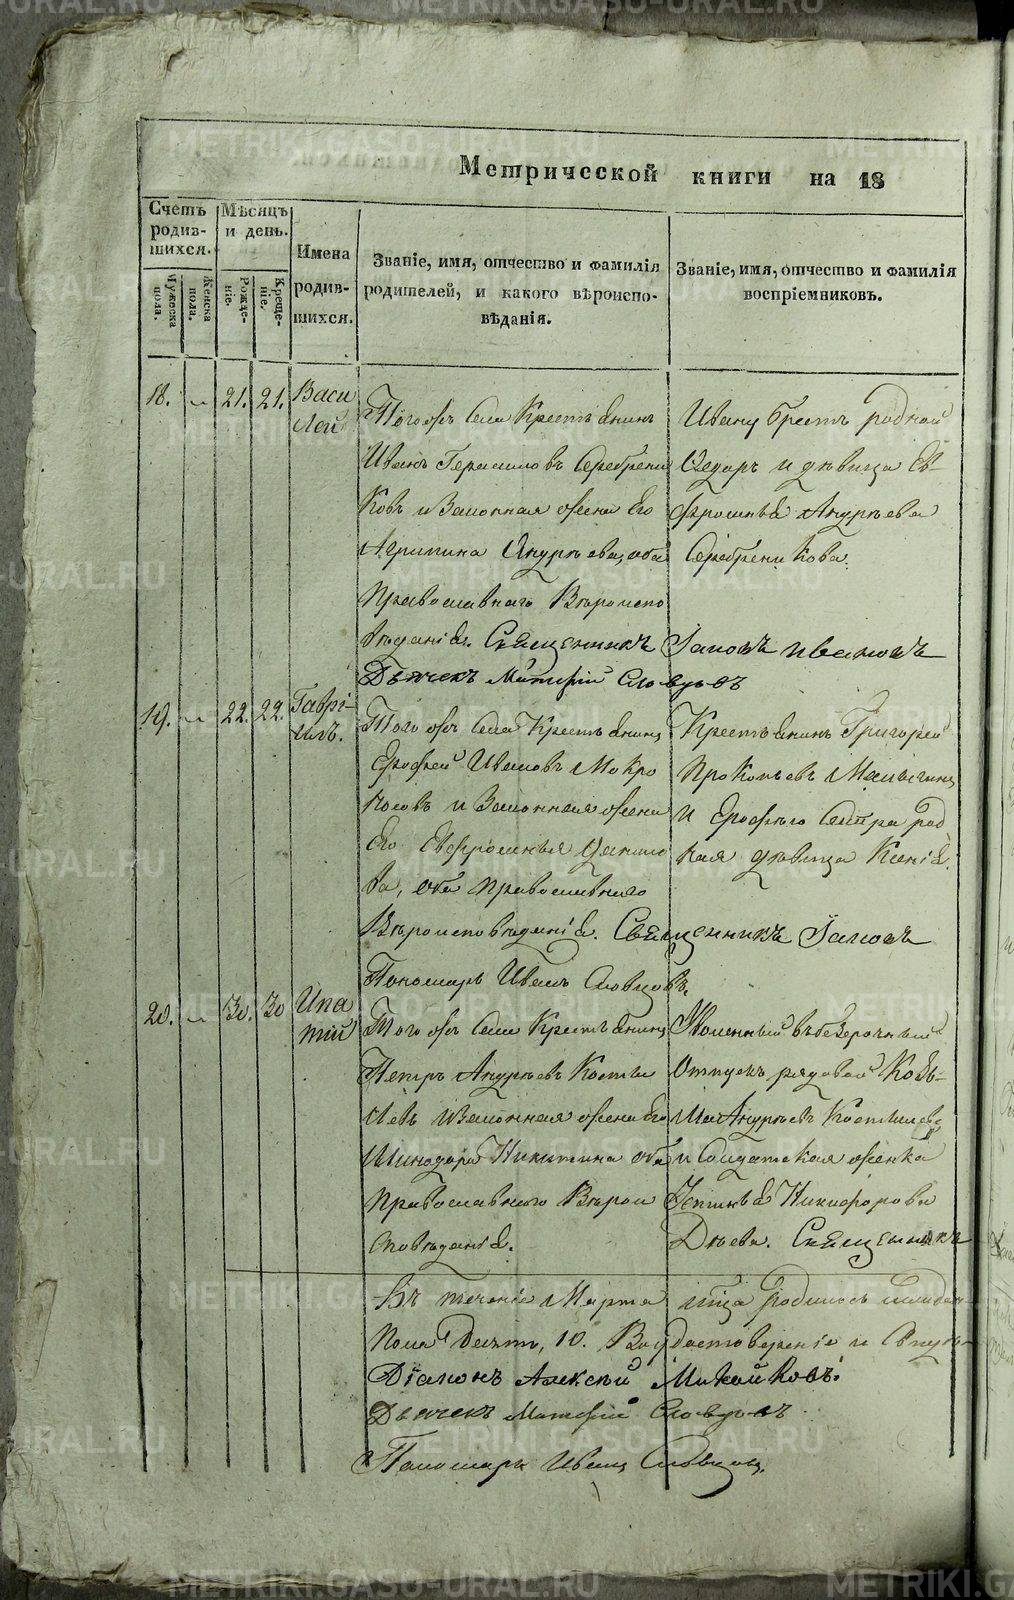 Метрической книги на 18
Счетъ родив-шихся.
Мужеска пола.
Женска пола.
Мѣсяцъ и день.
Рожде-ніе.
Креще-ніе.
Имена родив-шихся.
Званіе, имя, отчество и фамилія родителей, и какого вѣроиспо-вѣданія.
Званіе, имя, отчество и фамилія воспріемниковъ.
18. 21. 21. Васи
лей
Того жъ села Крестьянинъ
Иванъ Герасимовъ Серебрени
ковъ и Законная жена его
Агрипина Андрѣева, оба
Православнаго Вѣроиспо
вѣданія. Священникъ Іаковъ Ивановъ
Дьячекъ Матфій Словцовъ
Ивану братъ родной
Ѳедоръ и дѣвица Ев-
фросинья Андрѣева
Серебреникова.
19. 22. 22. Гаврі-
илъ.
Того жъ села Крестьянинъ
Ерофей Ивановъ Мокро
носовъ и Законная жена
его Евфросинья Данило
ва, оба православнаго
Вѣроисповѣданія. Священникъ Іаковъ
Пономарь Иванъ Словцовъ.
Крестьянинъ Григорей
Прокопьевъ Малыгинъ
и Ерофѣю сестра род
ная дѣвица Ксенія.
20. 30. 30 Ипа
тій
Того жъ села Крестьянинъ
Петръ Андрѣевъ Косты
левъ и Законная жена его
Никитина оба
православнаго Вѣрои
сповѣданія.
Уволенный въ безсрочный
отпускъ рядовой Козь-
ма Андрѣевъ Костылевъ
и Солдатская женка
Устинья Никифорова
Дѣева. Священникъ
Въ теченіе Марта родилось
пола Десять, 10. В удостовѣреніе и
Діаконъ Алексѣй
Дьячекъ Матфій Словцовъ
Пономарь Иванъ Словцовъ.
METRIKI.GASO-URAL.RU